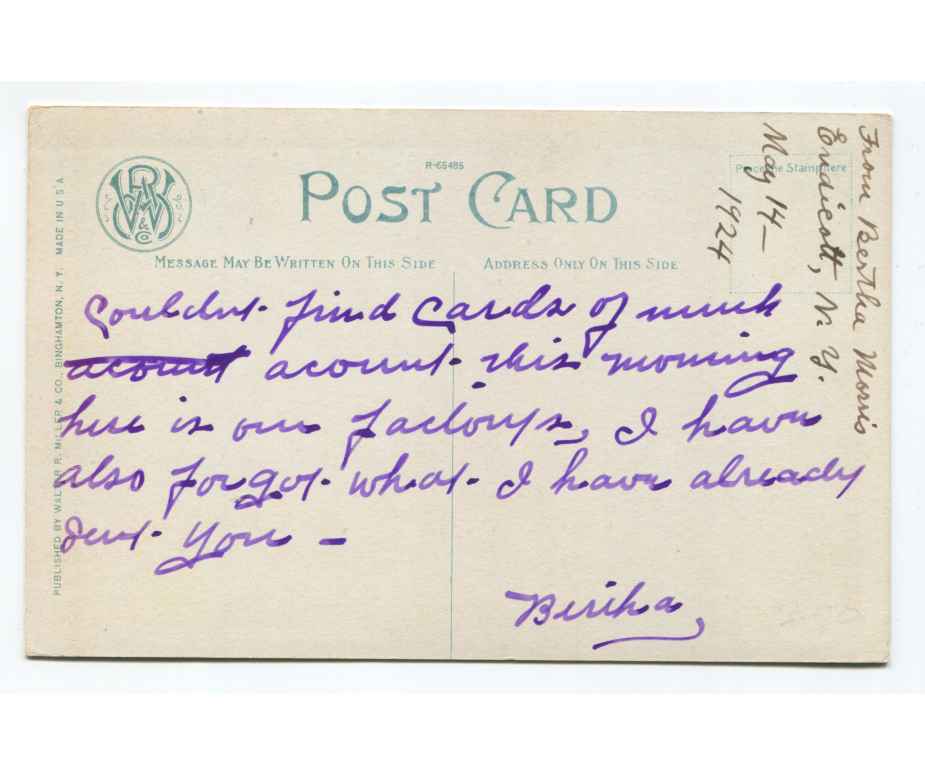 R-65485
POST CARD
WRM & Co
Place the Stamp here
MESSAGE MAY BE WRITTEN ON THIS SIDE
ADDRESS ONLY ON THIS SIDE
Couldnt find cards of much
acount acount this morning
here is our factorys, I have
also forgot what I have already
sent you –
Bertha
From Bertha Morris
Endicott, N. Y.
May 14 –
1924
PUBLISHED BY WALTER R. MILLER & CO., BINGHAMTON, N. Y. MADE IN U.S.A